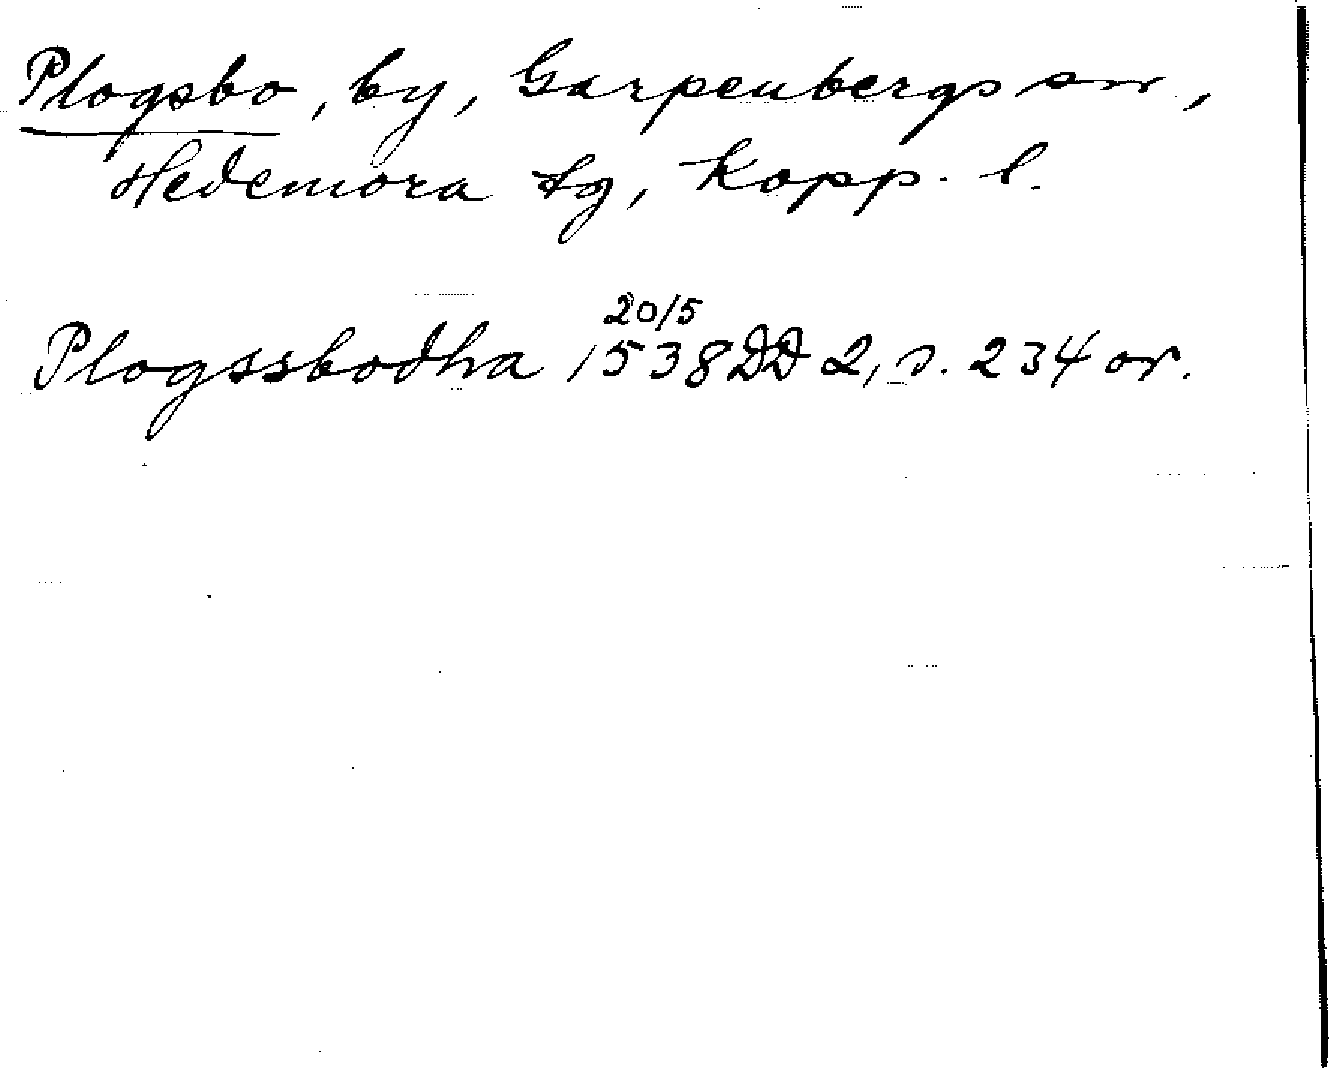 Plogsbo, by, Garpenbergs sn,
Hedemora tg, Kopp. l.
20/5
Plogssbodha 1538 DD 2, s. 234 or.